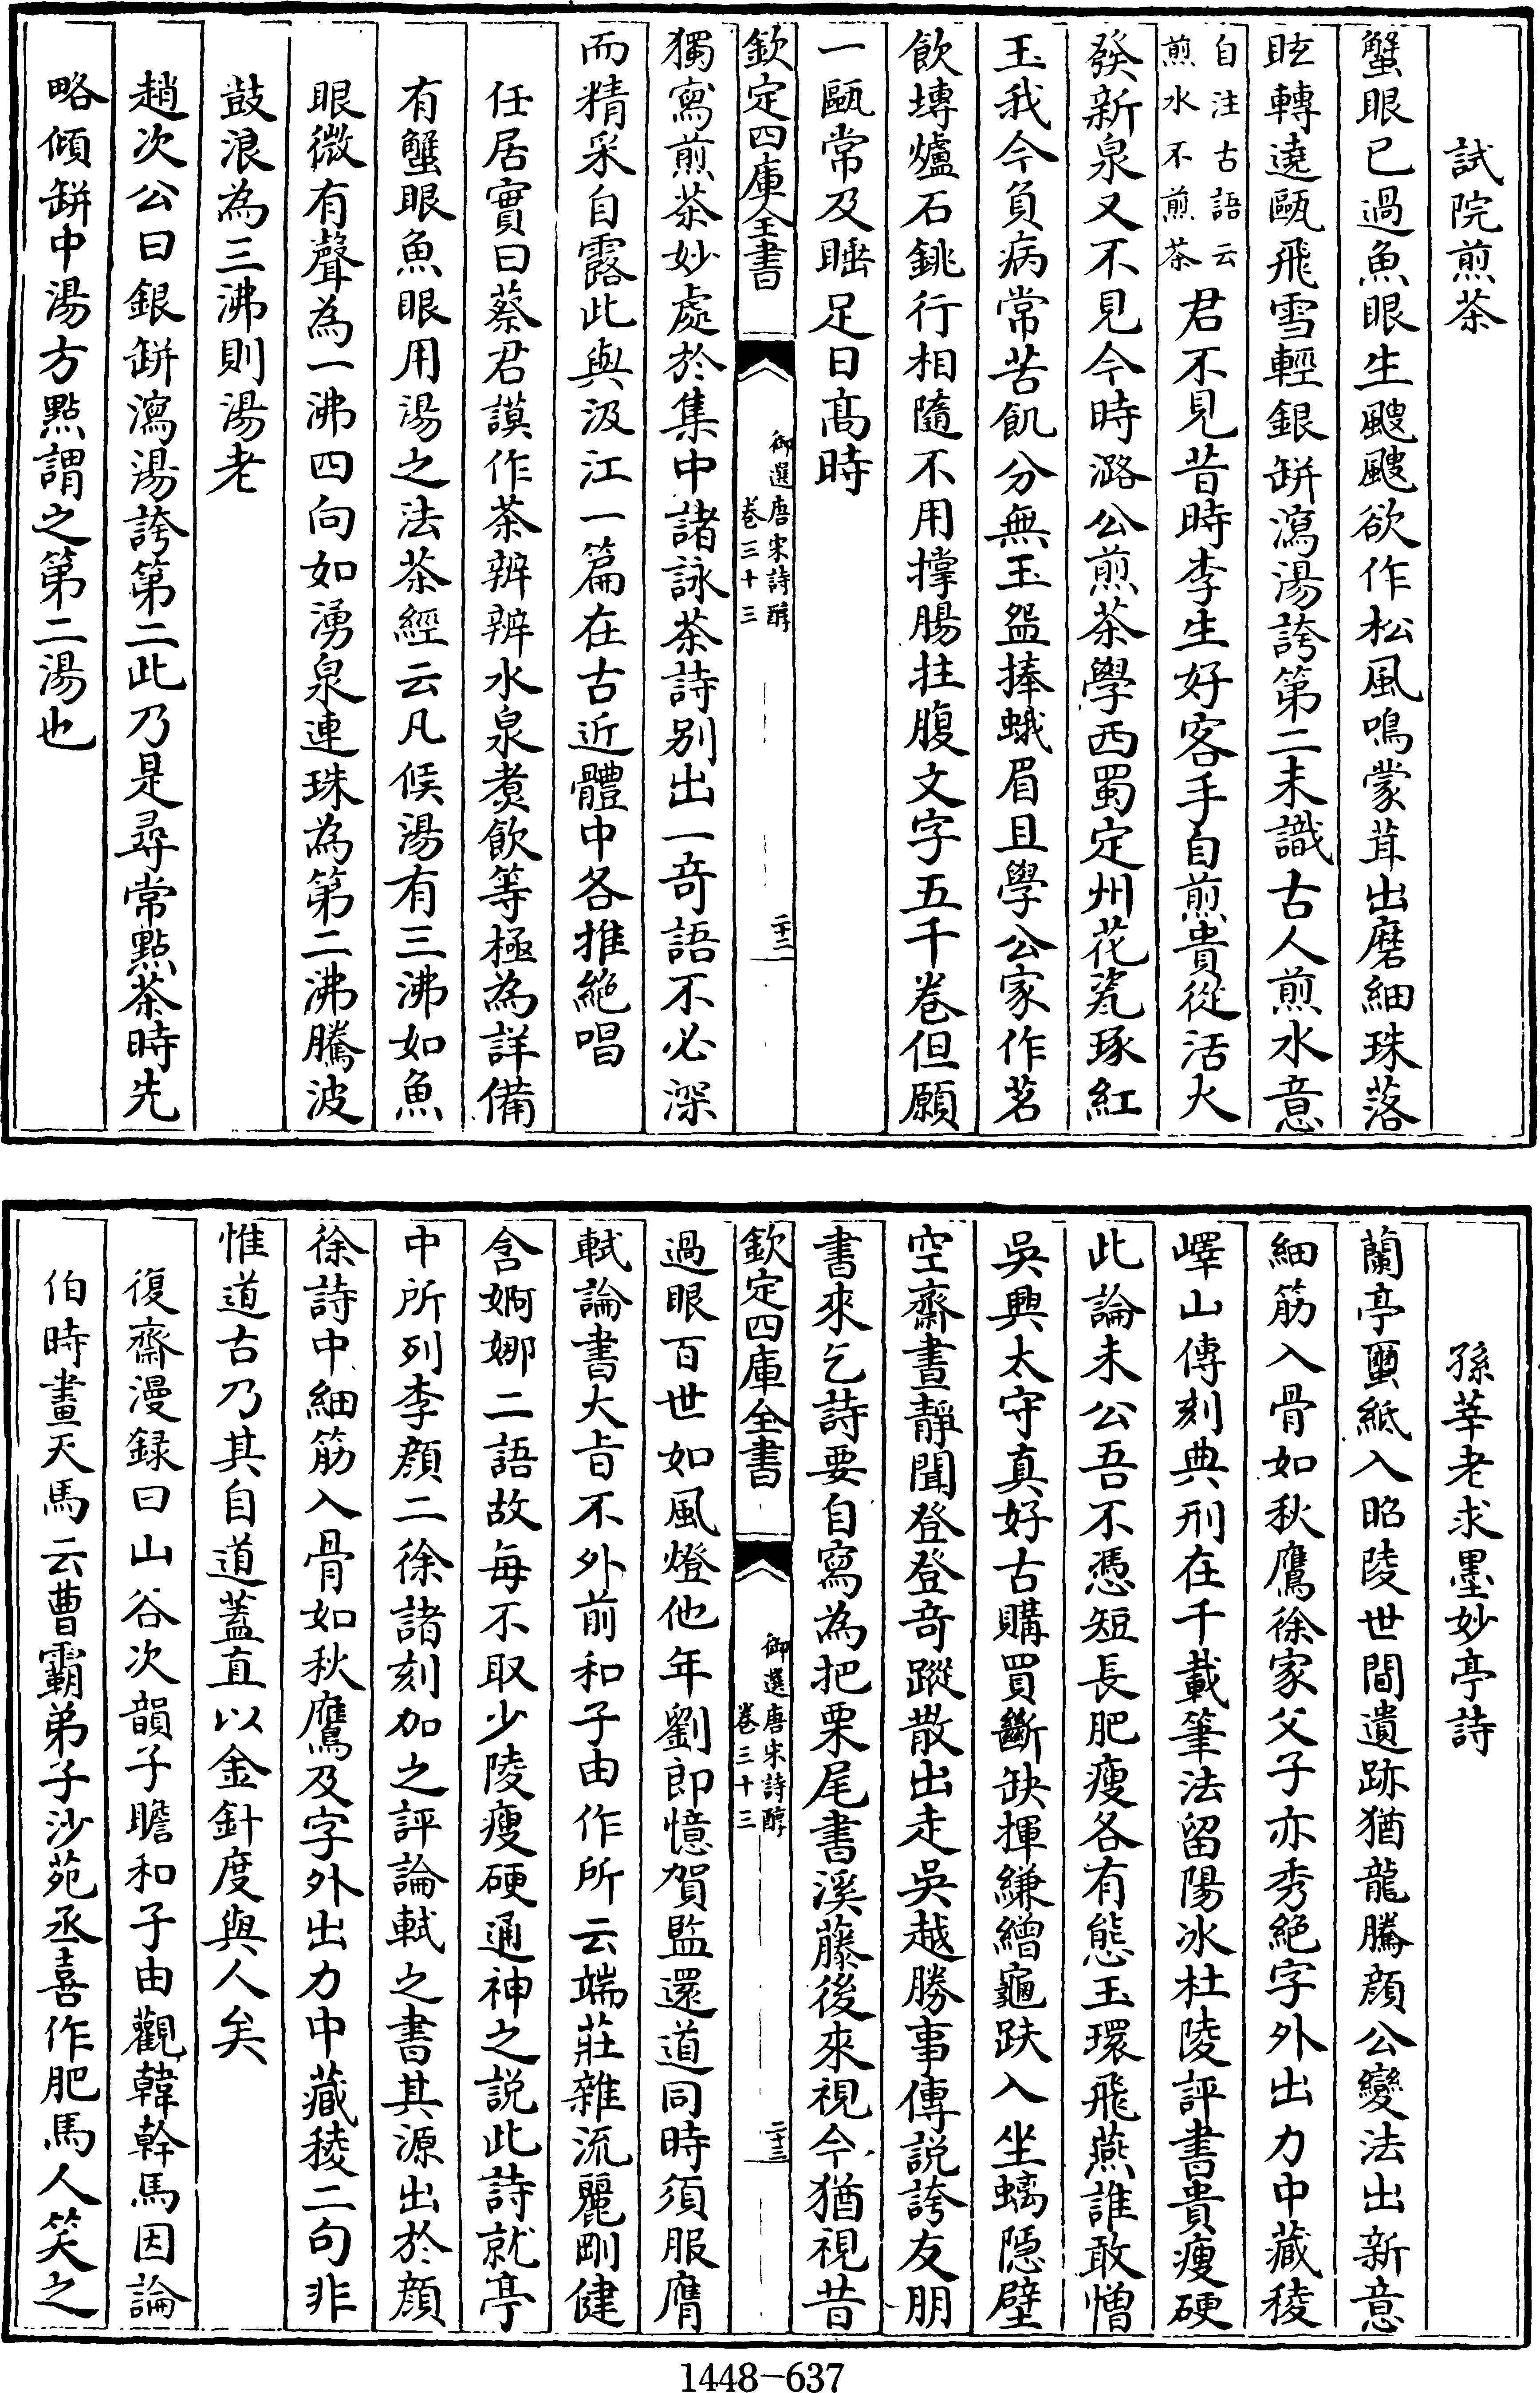 試院煎茶
蟹眼已過魚眼生颼颼欲作松風鳴蒙茸出磨細珠落
眩轉遶甌飛雪輕銀缾瀉湯誇第二未識古人煎水意
自注古語云
煎水不煎茶
君不見昔時李生好客手自煎貴從活火
發新泉又不見今時潞公煎茶學西蜀定州花瓷琢紅
玉我今負病常苦飢分無玉盌捧蛾眉且學公家作茗
飲塼爐石銚行相隨不用撑腸拄腹文字五千卷但願
一甌常及睡足日髙時
欽定四庫全書
御選唐宋詩醇
卷三十三
二十二
獨寫煎茶妙處於集中諸詠茶詩别出一竒語不必深
而精采自露此與汲江一篇在古近體中各推絶唱
任居實曰蔡君謨作茶辨辨水泉煮飲等極為詳備
有蟹眼魚眼用湯之法茶經云凡候湯有三沸如魚
眼微有聲為一沸四向如湧泉連珠為第二沸騰波
鼓浪為三沸則湯老
趙次公曰銀缾瀉湯誇第二此乃是尋常點茶時先
略傾缾中湯方點謂之第二湯也
孫莘老求墨妙亭詩
蘭亭繭紙入昭陵世間遺跡猶龍騰顔公變法出新意
細筋入骨如秋鷹徐家父子亦秀絶字外出力中藏稜
嶧山傳刻典刑在千載筆法留陽冰杜陵評書貴瘦硬
此論未公吾不憑短長肥瘦各有態玉環飛燕誰敢憎
吳興太守真好古購買斷缺揮縑繒龜趺入坐螭隠壁
空齋晝静聞登登竒蹤散出走吳越勝事傳説誇友朋
書來乞詩要自寫為把栗尾書溪藤後來視今猶視昔
欽定四庫全書
御選唐宋詩醇
卷三十三
二十三
過眼百世如風燈他年劉郎憶賀監還道同時須服膺
軾論書大㫖不外前和子由作所云端莊雜流麗剛健
含婀娜二語故每不取少陵瘦硬通神之説此詩就亭
中所列李顔二徐諸刻加之評論軾之書其源出於顔
徐詩中細筋入骨如秋鷹及字外出力中藏稜二句非
惟道古乃其自道蓋直以金針度與人矣
復齋漫録曰山谷次韻子瞻和子由觀韓幹馬因論
伯時畫天馬云曹霸弟子沙苑丞喜作肥馬人笑之
1448-637